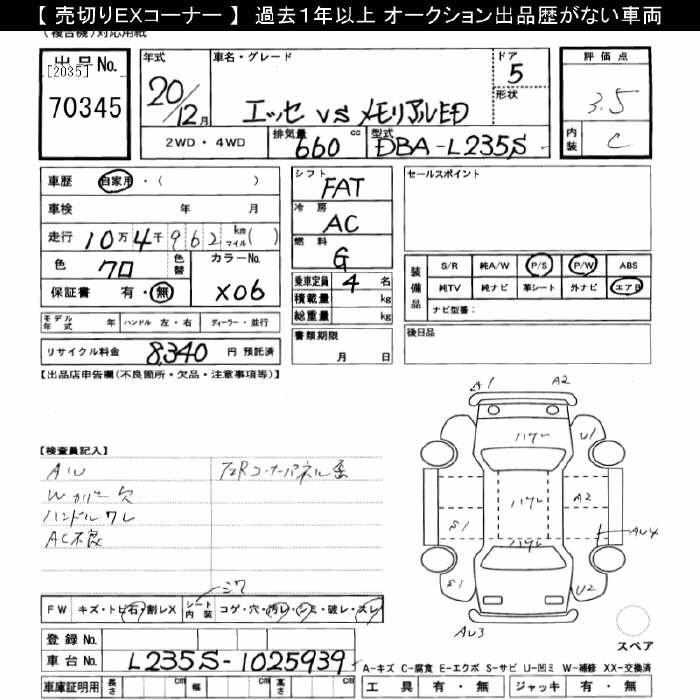 【 売切りEXコーナー 】 過去1年以上 オークション出品歴がない車両
(複合機)対応用紙
出品No. [2035] 70345
年式 20/12月
車名・グレード エッセ VS メモリアルED
ドア 5
形状
評価点 3.5
内装 C
2WD・4WD
排気量 660 cc
型式 DBA-L235S
車歴 自家用・( )
車検 年 月
走行 10万4千962 km マイル( )
色 クロ 色替
カラーNo. X06
保証書 有・無
モデル年式 年 ハンドル 左・右 ディーラー・並行
リサイクル料金 8,340 円 預託済
シフト FAT
冷房 AC
燃料 G
乗車定員 4 名
積載量 kg
総重量 kg
書類期限 月 日
セールスポイント
装備品
S/R 純A/W P/S P/W ABS
純TV 純ナビ 革シート 外ナビ エアB
ナビ型番:
後日品
【出品店申告欄(不良箇所・欠品・注意事項等)】
【検査員記入】
Aリレ
Wカバー欠
ハンドルワレ
AC不良
コーナーパネル
A1 A2
ハクレ U1
ハクレ A2
S1 ハクレ AU4
S1 U2
AU3
スペア
FW キズ・トビ石・割レX
シート内装 コゲ・穴・汚レ・シミ・破レ・スレ
シワ
登録No.
車台No. L235S-1025939
A-キズ C-腐食 E-エクボ S-サビ U-凹ミ W-補修 XX-交換済
車庫証明用 長さ cm 幅 cm 高さ cm
工具 有・無 ジャッキ 有・無